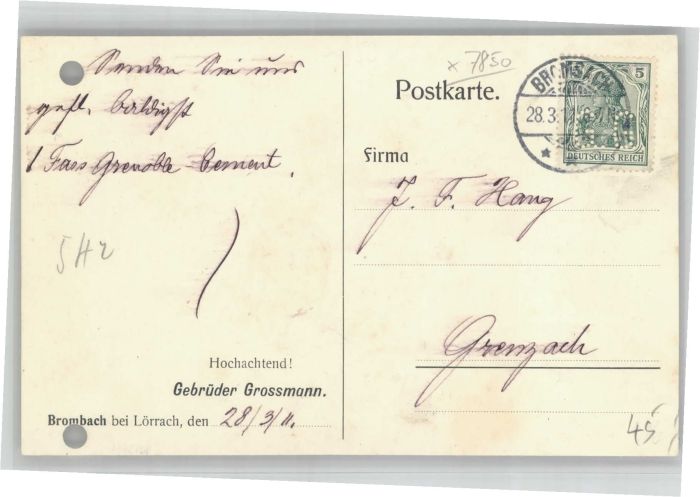 Senden Sie uns
gefl. baldigst
1 Fass Grenoble Cement.
5H2
Hochachtend!
Gebrüder Grossmann.
Brombach bei Lörrach, den 28/3/11.
x 7850
Postkarte.
BROMBACH
28.3.11
5
DEUTSCHES REICH
Firma
J. F. Hang
Grenzach
45